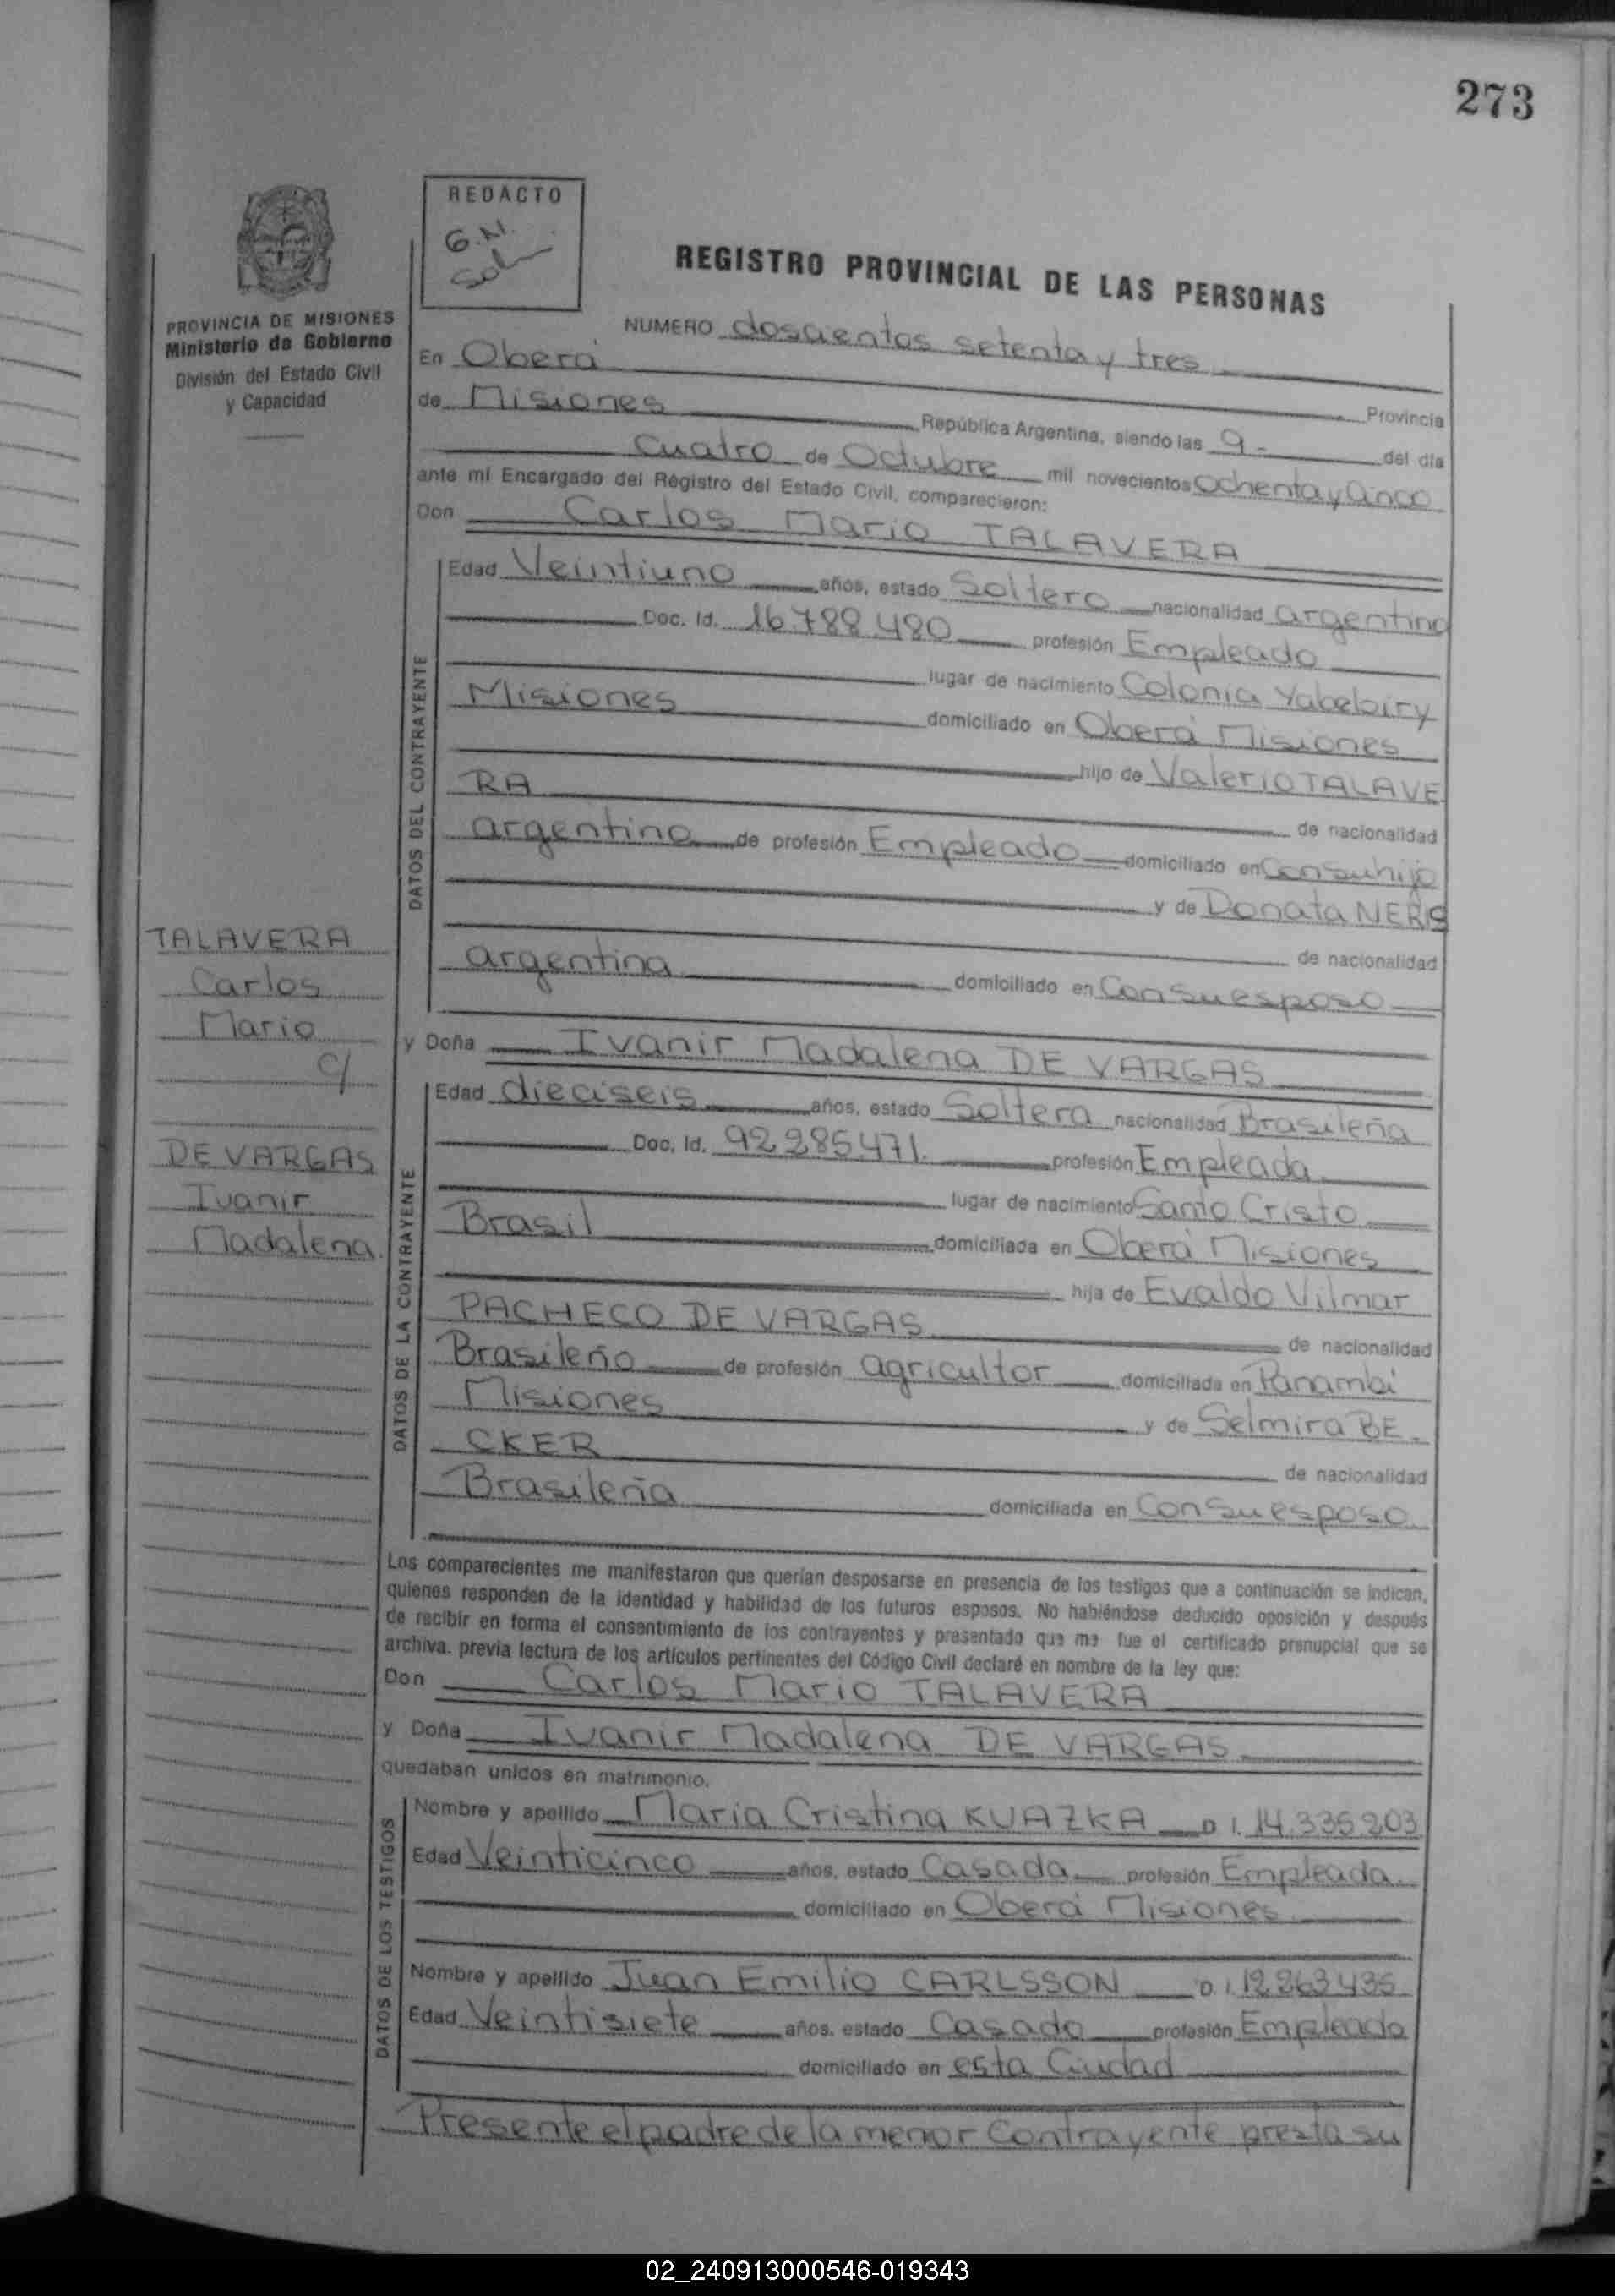 273
REDACTO
G.N.
REGISTRO PROVINCIAL DE LAS PERSONAS
PROVINCIA DE MISIONES
Ministerio de Gobierno
División del Estado Civil
y Capacidad
NUMERO doscientos setenta y tres
En Oberá Provincia
de Misiones República Argentina, siendo las 9 del día
Cuatro de Octubre mil novecientos Ochenta y Cinco
ante mí Encargado del Registro del Estado Civil, comparecieron:
Don Carlos Mario TALAVERA
DATOS DEL CONTRAYENTE
Edad Veintiuno años, estado Soltero nacionalidad argentino
Doc. Id. 16.788.480 profesión Empleado
lugar de nacimiento Colonia Yabebiry
Misiones domiciliado en Oberá Misiones
hijo de Valerio TALAVE
RA de nacionalidad
argentino de profesión Empleado domiciliado en Con su hijo
y de Donata NERIS
de nacionalidad
argentina domiciliado en Con su esposo
TALAVERA
Carlos
Mario
c/
DE VARGAS
Ivanir
Madalena
y Doña Ivanir Madalena DE VARGAS
DATOS DE LA CONTRAYENTE
Edad dieciseis años, estado Soltera nacionalidad Brasileña
Doc. Id. 92.285.471. profesión Empleada
lugar de nacimiento Santo Cristo
Brasil domiciliada en Oberá Misiones
hija de Evaldo Vilmar
PACHECO DE VARGAS de nacionalidad
Brasileño de profesión agricultor domiciliada en Panambí
Misiones y de Selmira BE
CKER de nacionalidad
Brasileña domiciliada en Con su esposo
Los comparecientes me manifestaron que querían desposarse en presencia de los testigos que a continuación se indican,
quienes responden de la identidad y habilidad de los futuros esposos. No habiéndose deducido oposición y después
de recibir en forma el consentimiento de los contrayentes y presentado que me fue el certificado prenupcial que se
archiva. previa lectura de los artículos pertinentes del Código Civil declaré en nombre de la ley que:
Don Carlos Mario TALAVERA
y Doña Ivanir Madalena DE VARGAS
quedaban unidos en matrimonio.
DATOS DE LOS TESTIGOS
Nombre y apellido Maria Cristina KUAZKA D.I. 14.335.203
Edad Veinticinco años, estado Casada profesión Empleada
domiciliado en Oberá Misiones
Nombre y apellido Juan Emilio CARLSSON D.I. 12.263.435
Edad Veintisiete años. estado Casado profesión Empleado
domiciliado en esta Ciudad
Presente el padre de la menor Contrayente presta su
02_240913000546-019343